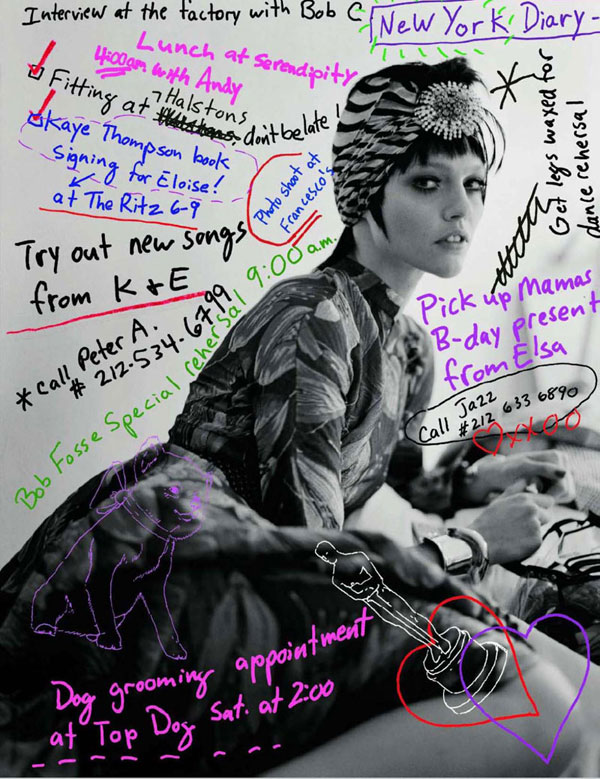 Interview at the factory with Bob C
New York Diary-
Lunch at Serendipity
4:00am with Andy
Fitting at Halstons
don't be late!
Kaye Thompson book
Signing for Eloise!
at The Ritz 6-9
Photo shoot at
Francesco's
Get legs waxed for
dance rehersal
Try out new songs
from K & E
* Call Peter A.
# 212-534-6799
Bob Fosse Special rehersal 9:00 a.m.
Pick up Mamas
B-day present
from Elsa
Call Jazz
#212 633 6890
xxoo
Dog grooming appointment
at Top Dog Sat. at 2:00